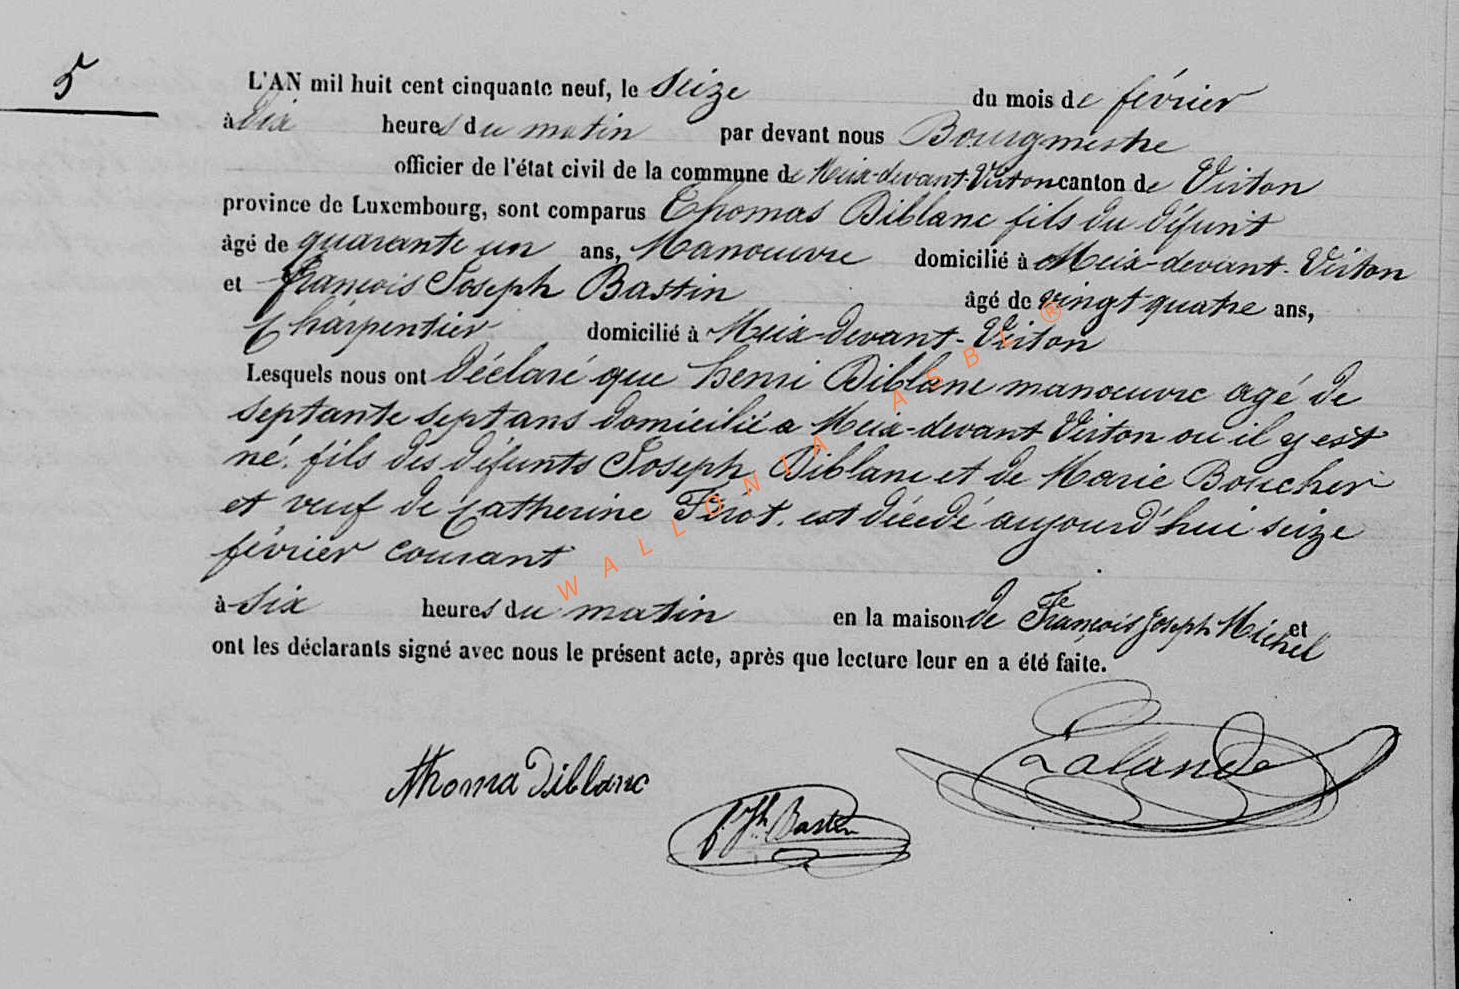 5
L'AN mil huit cent cinquante neuf, le Seize du mois de février
à dix heures du matin par devant nous Bourgmestre
officier de l'état civil de la commune de Meix-devant-Virton canton de Virton
province de Luxembourg, sont comparus Thomas Diblanc fils du défunt
âgé de quarante un ans, Manoeuvre domicilié à Meix-devant-Virton
et françois Joseph Bastin âgé de vingt quatre ans,
Charpentier domicilié à Meix-devant-Virton
Lesquels nous ont déclaré que henri Diblanc manoeuvre agé de
septante sept ans domicilié a Meix-devant Virton ou il y est
né. fils des défunts Joseph Diblanc et de Marie Boucher
et veuf de Catherine est décédé aujourd'hui seize
février courant
à six heures du matin en la maison de François Joseph Michel et
ont les déclarants signé avec nous le présent acte, après que lecture leur en a été faite.
Thoma Diblanc
f Jh Bastin
Lalande
WALLONIA ASBL ®